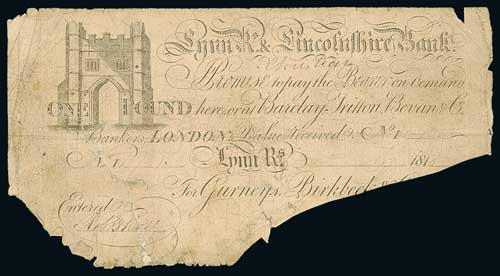 Lynn Rs. & Lincolnshire Bank.
I Promise to pay the Bearer on Demand
ONE POUND here, or at Barclay, Tritton, Bevan & Co.
Bankers, LONDON, Value received. No. 1
Lynn Rs. 181
For Gurneys, Birkbeck &
Entered